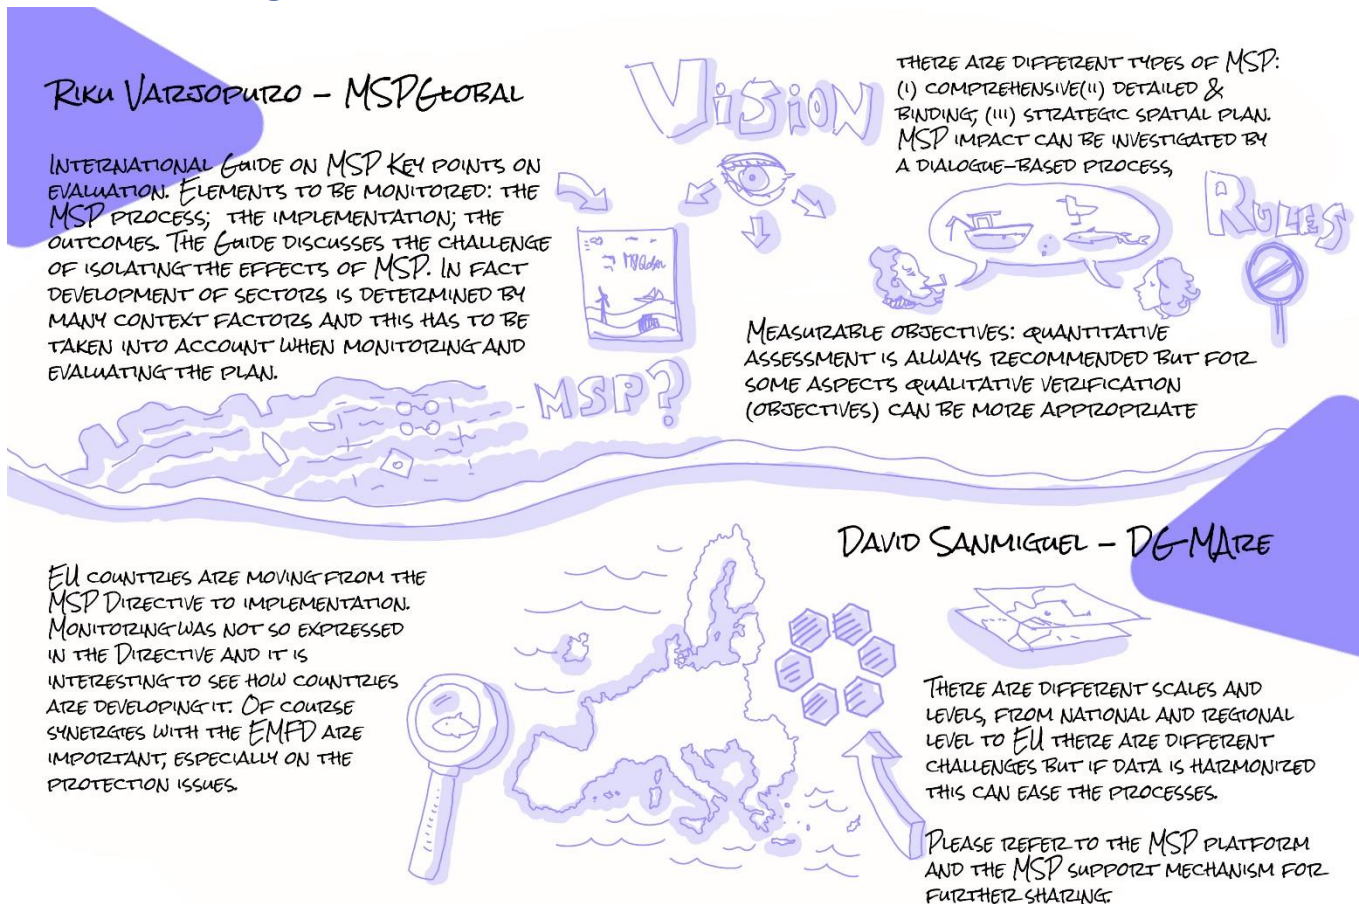 Riku Varjopuro – MSPGlobal
International Guide on MSP Key points on
evaluation. Elements to be monitored: the
MSP process; the implementation; the
outcomes. The Guide discusses the challenge
of isolating the effects of MSP. In fact
development of sectors is determined by
many context factors and this has to be
taken into account when monitoring and
evaluating the plan.
Vision
MSP?
there are different types of MSP:
(i) comprehensive(ii) detailed &
binding, (iii) strategic spatial plan.
MSP impact can be investigated by
a dialogue-based process,
Rules
Measurable objectives: quantitative
assessment is always recommended but for
some aspects qualitative verification
(objectives) can be more appropriate
David Sanmiguel – DG MAre
EU countries are moving from the
MSP Directive to implementation.
Monitoring was not so expressed
in the Directive and it is
interesting to see how countries
are developing it. Of course
synergies with the EMFD are
important, especially on the
protection issues.
There are different scales and
levels, from national and regional
level to EU there are different
challenges but if data is harmonized
this can ease the processes.
Please refer to the MSP platform
and the MSP support mechanism for
further sharing.